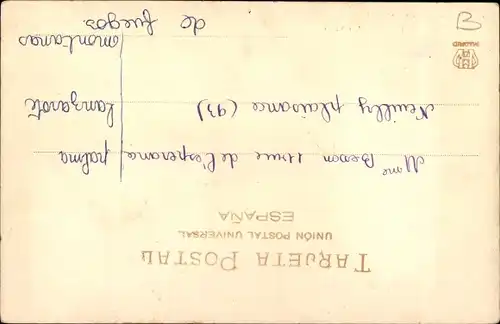 TARJETA POSTAL
UNIÓN POSTAL UNIVERSAL
ESPAÑA
Mme Besson 1 rue de l'esperance
Neuilly plaisance (93)
palma
Lanzarote
montanas
de fuegos
B